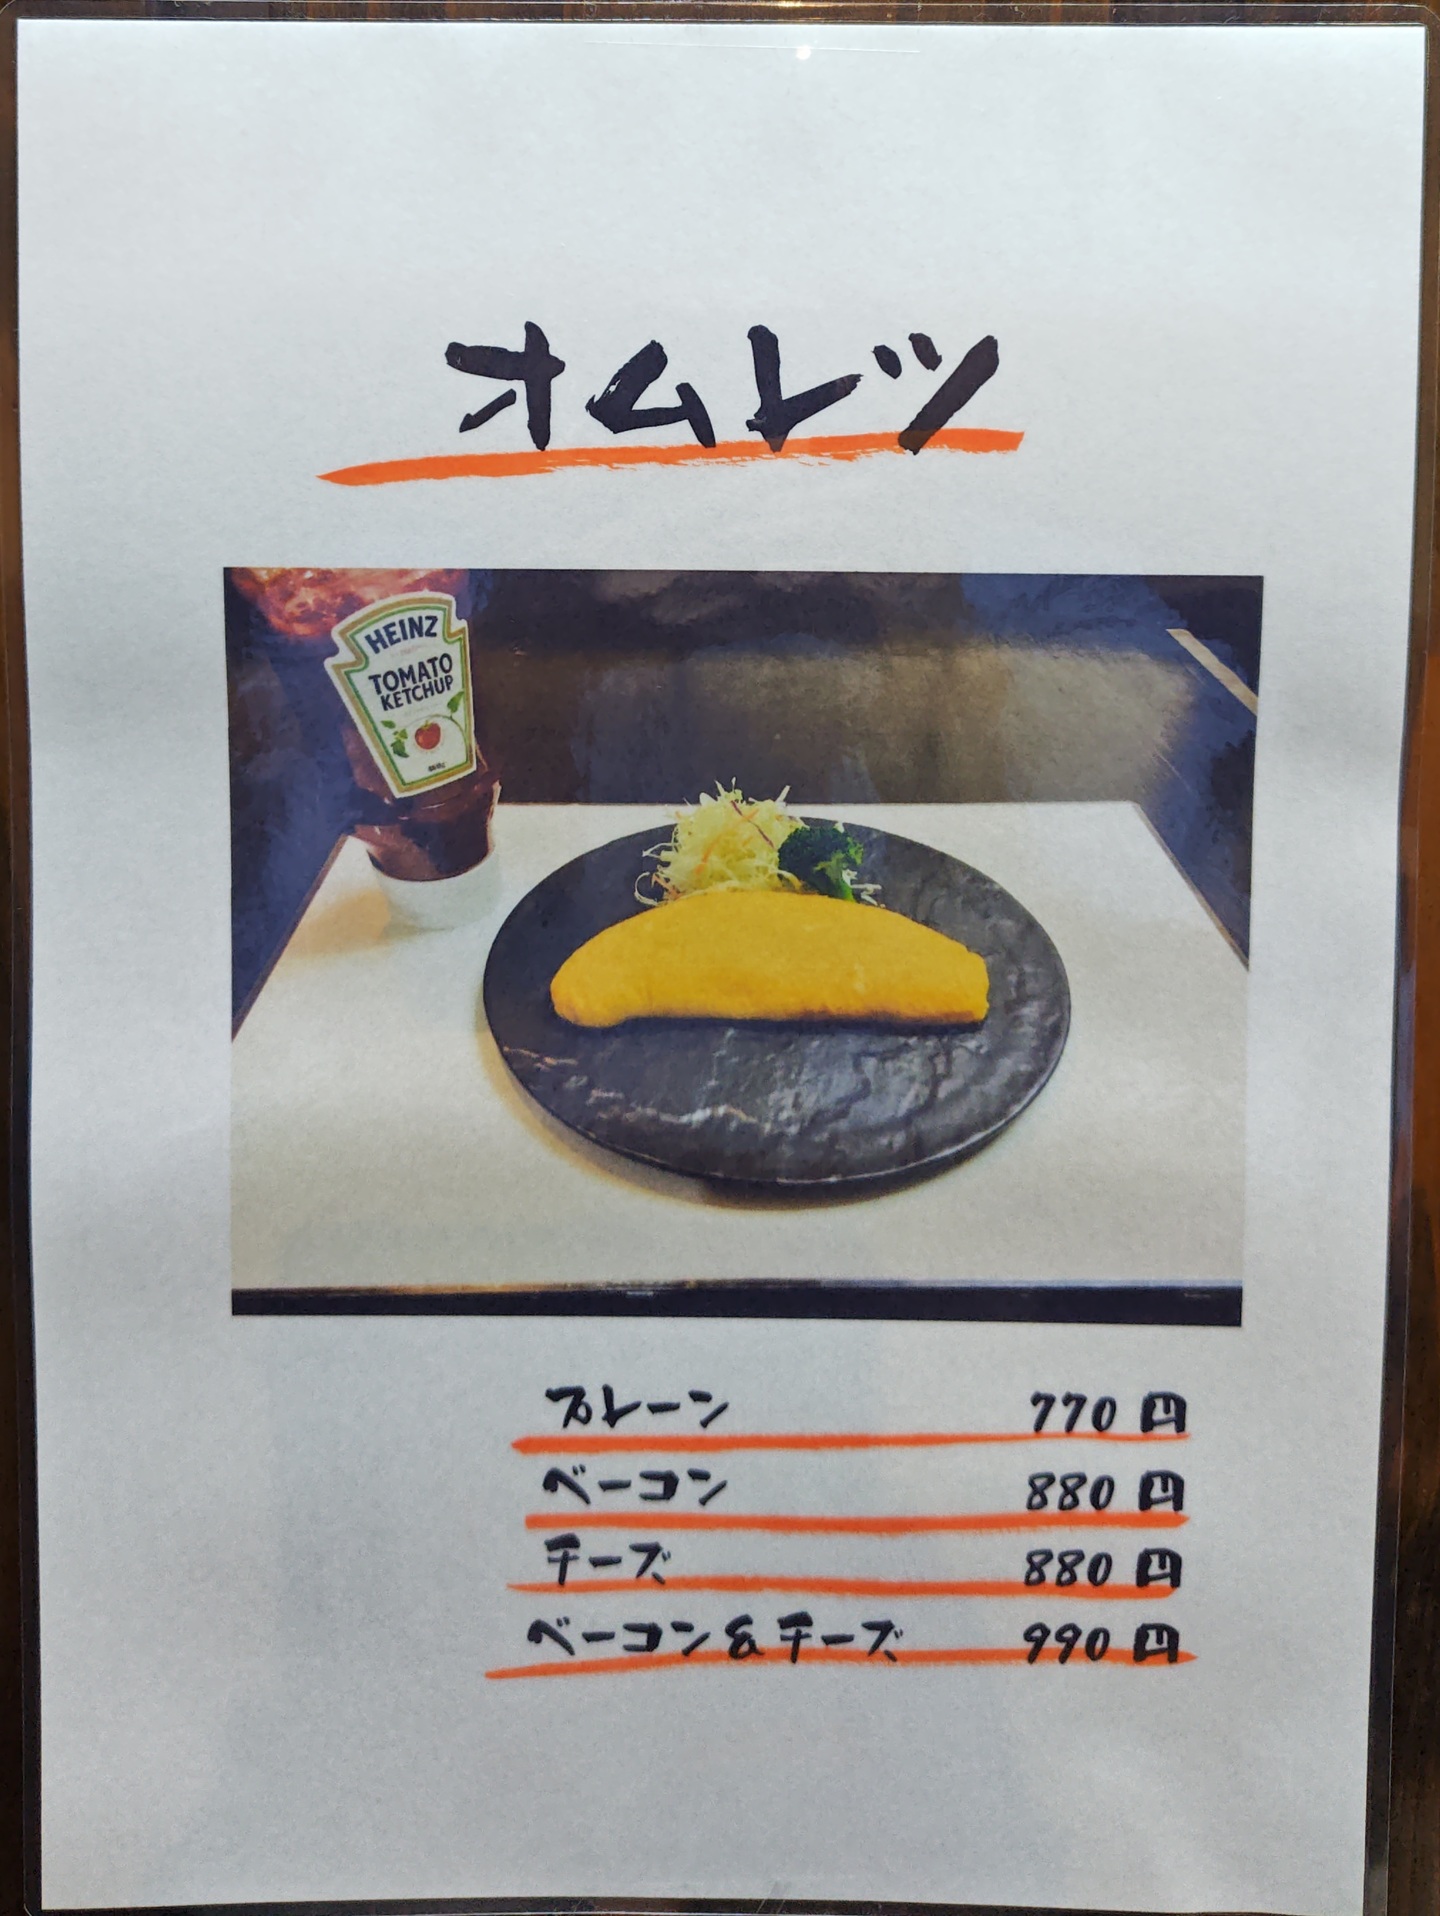 オムレツ
HEINZ
TOMATO
KETCHUP
プレーン 770円
ベーコン 880円
チーズ 880円
ベーコン&チーズ 990円